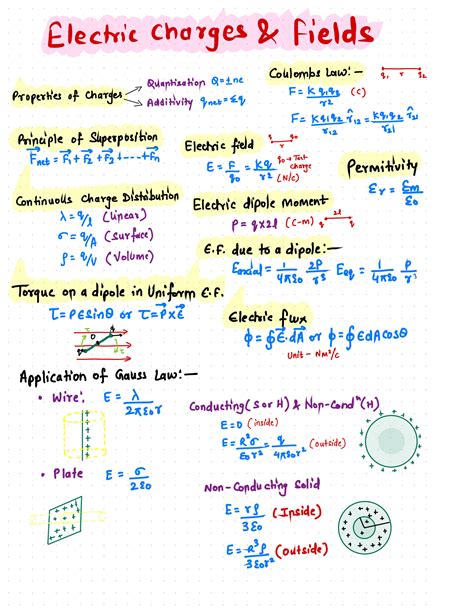 Electric Charges & Fields
Properties of Charges
Quantisation Q=±ne
Additivity qnet=Σq
Coulombs Law:-
q1 r q2
F = Kq1q2/r² (C)
F = Kq1q2/r12 r̂12 = Kq1q2/r21 r̂21
Principle of Superposition
F⃗net = F⃗1 + F⃗2 + F⃗3 + ---- + F⃗n
Electric field
E = F/q0 = Kq/r² (N/C)
q0 → Test charge
Permitivity
εr = εm/ε0
Continuous Charge Distribution
λ = q/l (Linear)
σ = q/A (Surface)
ρ = q/V (Volume)
Electric dipole moment
P = q×2l (C-m)
-q 2l q
E.F. due to a dipole:-
Eaxial = 1/4πε0 2P/r³ Eeq = 1/4πε0 P/r³
Torque on a dipole in Uniform E.F.
τ = PESinθ or τ⃗ = P⃗×E⃗
Electric flux
ϕ = ∮E⃗.dA⃗ or ϕ = ∮EdAcosθ
Unit - Nm²/c
Application of Gauss Law:-
• Wire: E = λ/2πε0r
• Plate E = σ/2ε0
Conducting (S or H) & Non-Condⁿ (H)
E = 0 (inside)
E = R²σ/ε0r² = q/4πε0r² (outside)
Non-Conducting Solid
E = rρ/3ε0 (Inside)
E = R³ρ/3ε0r² (outside)